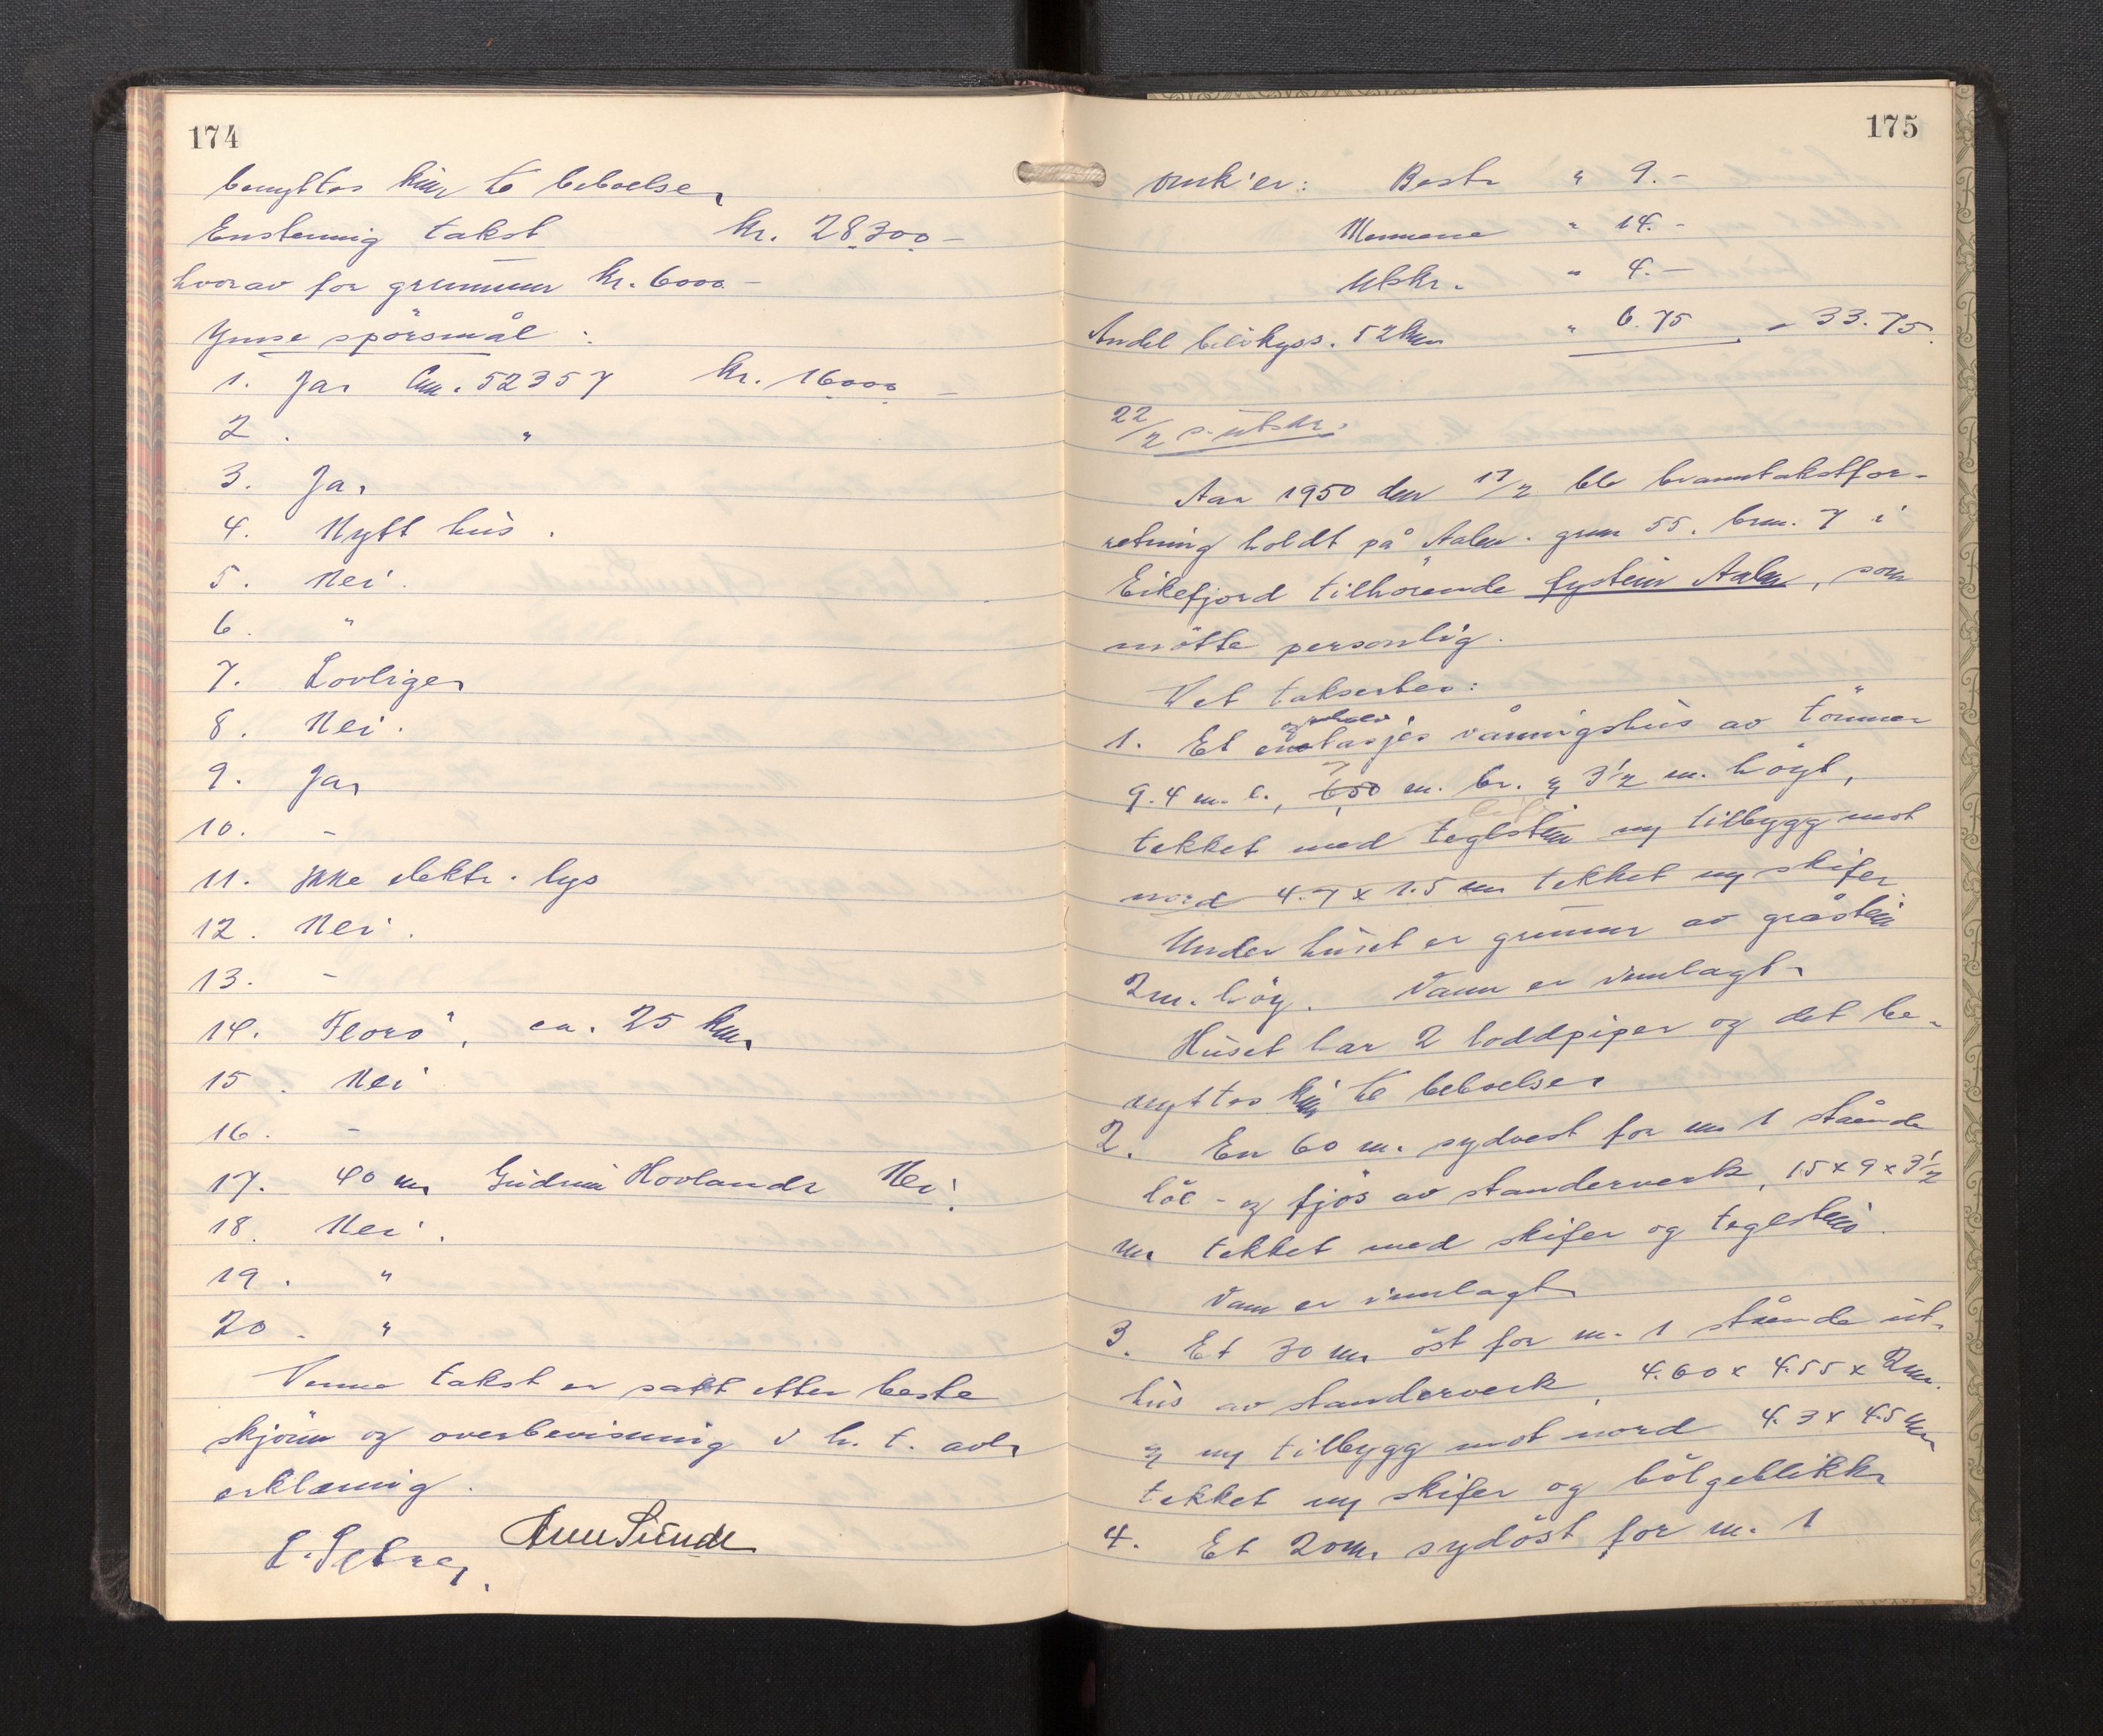 174
benyttes kun til beboelse.
Enstemmig takst kr. 28300 -
hvorav for grunnmur kr. 6000 -
Ymse spörsmål :
1. Ja. Lnr. 52357 kr. 16000 -
2. "
3. Ja.
4. Nytt hus.
5. Nei.
6. "
7. Lovlige.
8. Nei.
9. Ja.
10. -
11. Ikke elektr. lys
12. Nei.
13. -
14. Florö, ca. 25 km.
15. Nei
16. -
17. 40 m. Gudrun Hovland. Nei.
18. Nei.
19. "
20. "
Denne takst er satt etter beste
skjönn og overbevisning i h. t. avl.
erklæring.
175
omk'er: Best. " 9.-
Mennene " 14.-
Utskr. " 4.-
Andel bilskyss. 52 km " 6.75 " 33.75.
22/2 s. utskr.
Aar 1950 den 17/2 ble branntakstfor-
retning holdt på Aalen. gnr 55, bnr. 7 i
Eikefjord tilhörende Eystein Aalen, som
mötte personlig.
Det takseres:
1. Et en og halv etasjes våningshus av tömmer
9.4 m. l., 6,50 7 m. br. og 3 1/2 m. höyt,
tekket med teglstein og tilbygg mot
nord 4.7 x 1.5 m tekket og skifer
Under huset er grunnmur av gråstein
2 m. höy. Vann er innlagt.
Huset har 2 loddpiper og det be-
nyttes kun til beboelse.
2. En 60 m. sydvest for nr. 1 stående
löe - og fjös av standerverk, 15 x 9 x 3 1/2
m. tekket med skifer og teglstein.
Vann er innlagt.
3. Et 30 m. öst for nr. 1 stående ut-
hus av standerverk, 4.60 x 4.55 x 2 m.
og tilbygg mot nord 4.3 x 4.5 m.
tekket og skifer og bölgeblikk.
4. Et 20 m. sydöst for nr. 1